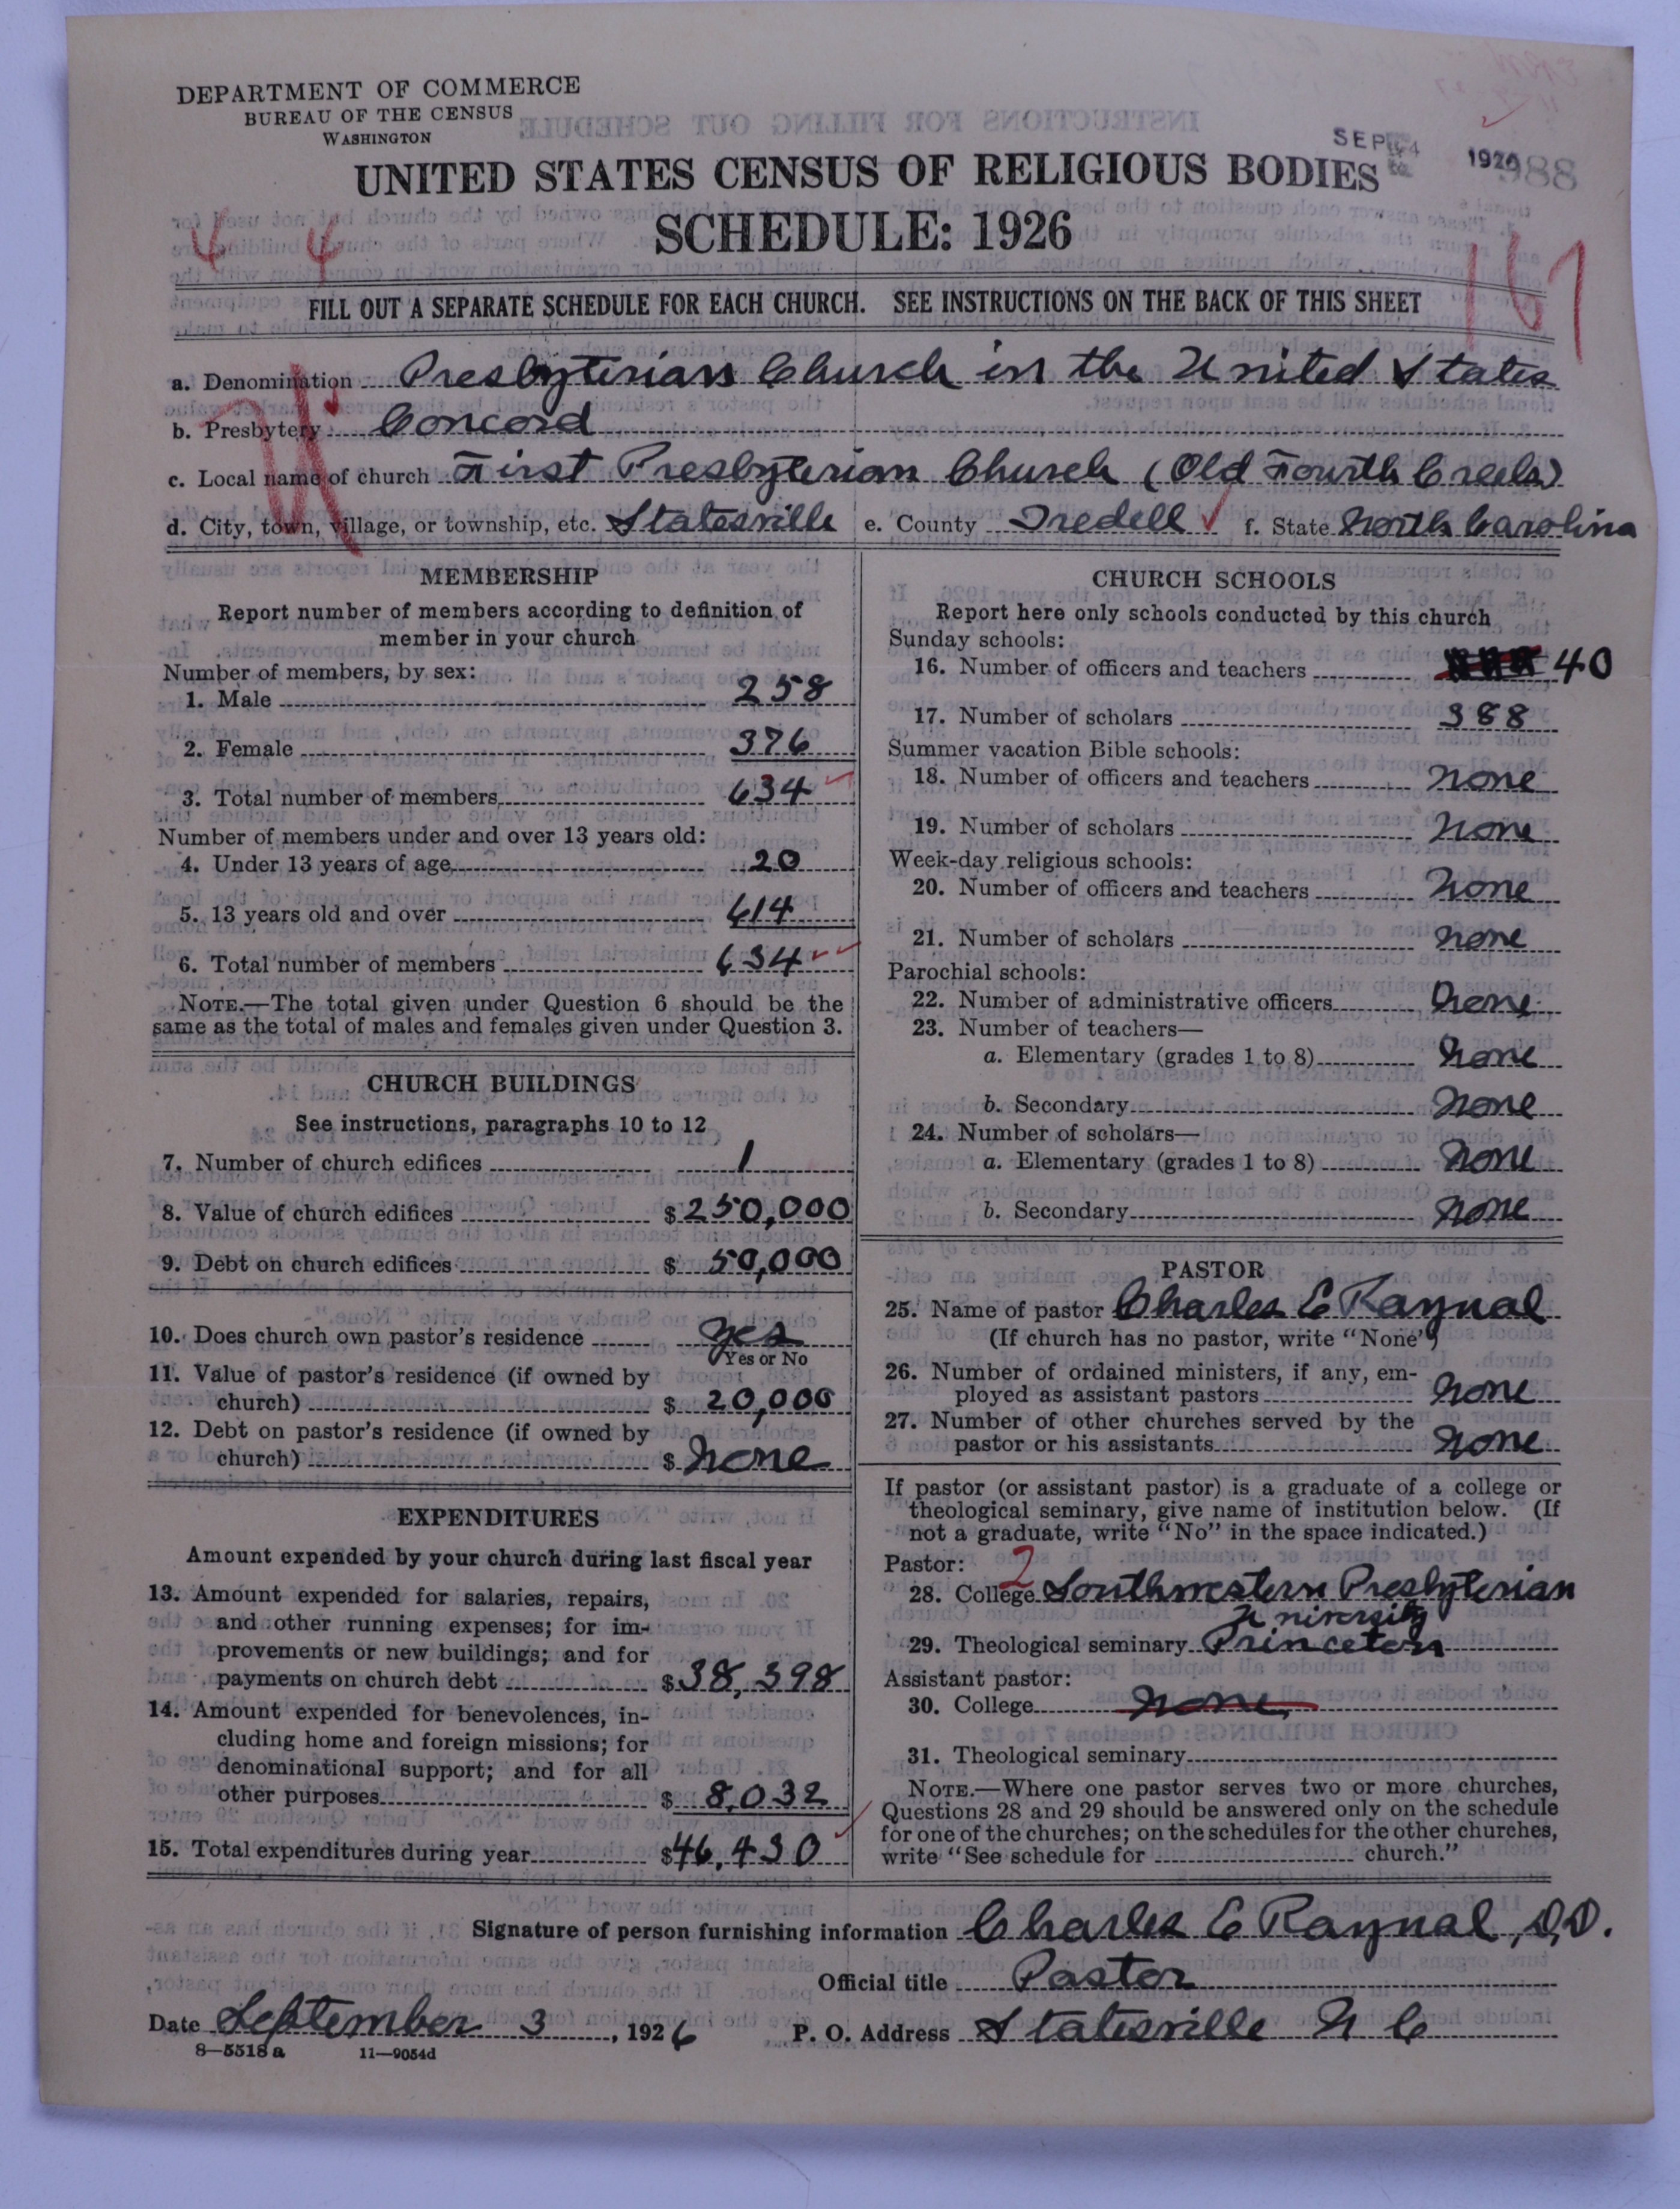 DEPARTMENT OF COMMERCE
BUREAU OF THE CENSUS
WASHINGTON
SEP 1926
UNITED STATES CENSUS OF RELIGIOUS BODIES
SCHEDULE: 1926
4 4
167
FILL OUT A SEPARATE SCHEDULE FOR EACH CHURCH. SEE INSTRUCTIONS ON THE BACK OF THIS SHEET
a. Denomination Presbyterian Church in the United States
b. Presbytery Concord
c. Local name of church First Presbyterian Church (Old Fourth Creek)
d. City, town, village, or township, etc. Statesville e. County Iredell f. State North Carolina
MEMBERSHIP
Report number of members according to definition of
member in your church
Number of members, by sex:
1. Male 258
2. Female 376
3. Total number of members 634
Number of members under and over 13 years old:
4. Under 13 years of age 20
5. 13 years old and over 614
6. Total number of members 634
NOTE.—The total given under Question 6 should be the
same as the total of males and females given under Question 3.
CHURCH BUILDINGS
See instructions, paragraphs 10 to 12
7. Number of church edifices 1
8. Value of church edifices $ 250,000
9. Debt on church edifices $ 50,000
10. Does church own pastor's residence Yes
Yes or No
11. Value of pastor's residence (if owned by
church) $ 20,000
12. Debt on pastor's residence (if owned by
church) $ None
EXPENDITURES
Amount expended by your church during last fiscal year
13. Amount expended for salaries, repairs,
and other running expenses; for im-
provements or new buildings; and for
payments on church debt $ 38,398
14. Amount expended for benevolences, in-
cluding home and foreign missions; for
denominational support; and for all
other purposes $ 8,032
15. Total expenditures during year $ 46,430
CHURCH SCHOOLS
Report here only schools conducted by this church
Sunday schools:
16. Number of officers and teachers 40
17. Number of scholars 388
Summer vacation Bible schools:
18. Number of officers and teachers None
19. Number of scholars None
Week-day religious schools:
20. Number of officers and teachers None
21. Number of scholars None
Parochial schools:
22. Number of administrative officers None
23. Number of teachers—
a. Elementary (grades 1 to 8) None
b. Secondary None
24. Number of scholars—
a. Elementary (grades 1 to 8) None
b. Secondary None
PASTOR
25. Name of pastor Charles E Raynal
(If church has no pastor, write "None")
26. Number of ordained ministers, if any, em-
ployed as assistant pastors None
27. Number of other churches served by the
pastor or his assistants None
If pastor (or assistant pastor) is a graduate of a college or
theological seminary, give name of institution below. (If
not a graduate, write "No" in the space indicated.)
Pastor: 2
28. College Southwestern Presbyterian
University
29. Theological seminary Princeton
Assistant pastor:
30. College None
31. Theological seminary
NOTE.—Where one pastor serves two or more churches,
Questions 28 and 29 should be answered only on the schedule
for one of the churches; on the schedules for the other churches,
write "See schedule for church."
Signature of person furnishing information Charles E Raynal, D.D.
Official title Pastor
Date September 3, 1926 P. O. Address Statesville N C
8—5518 a 11—9054d